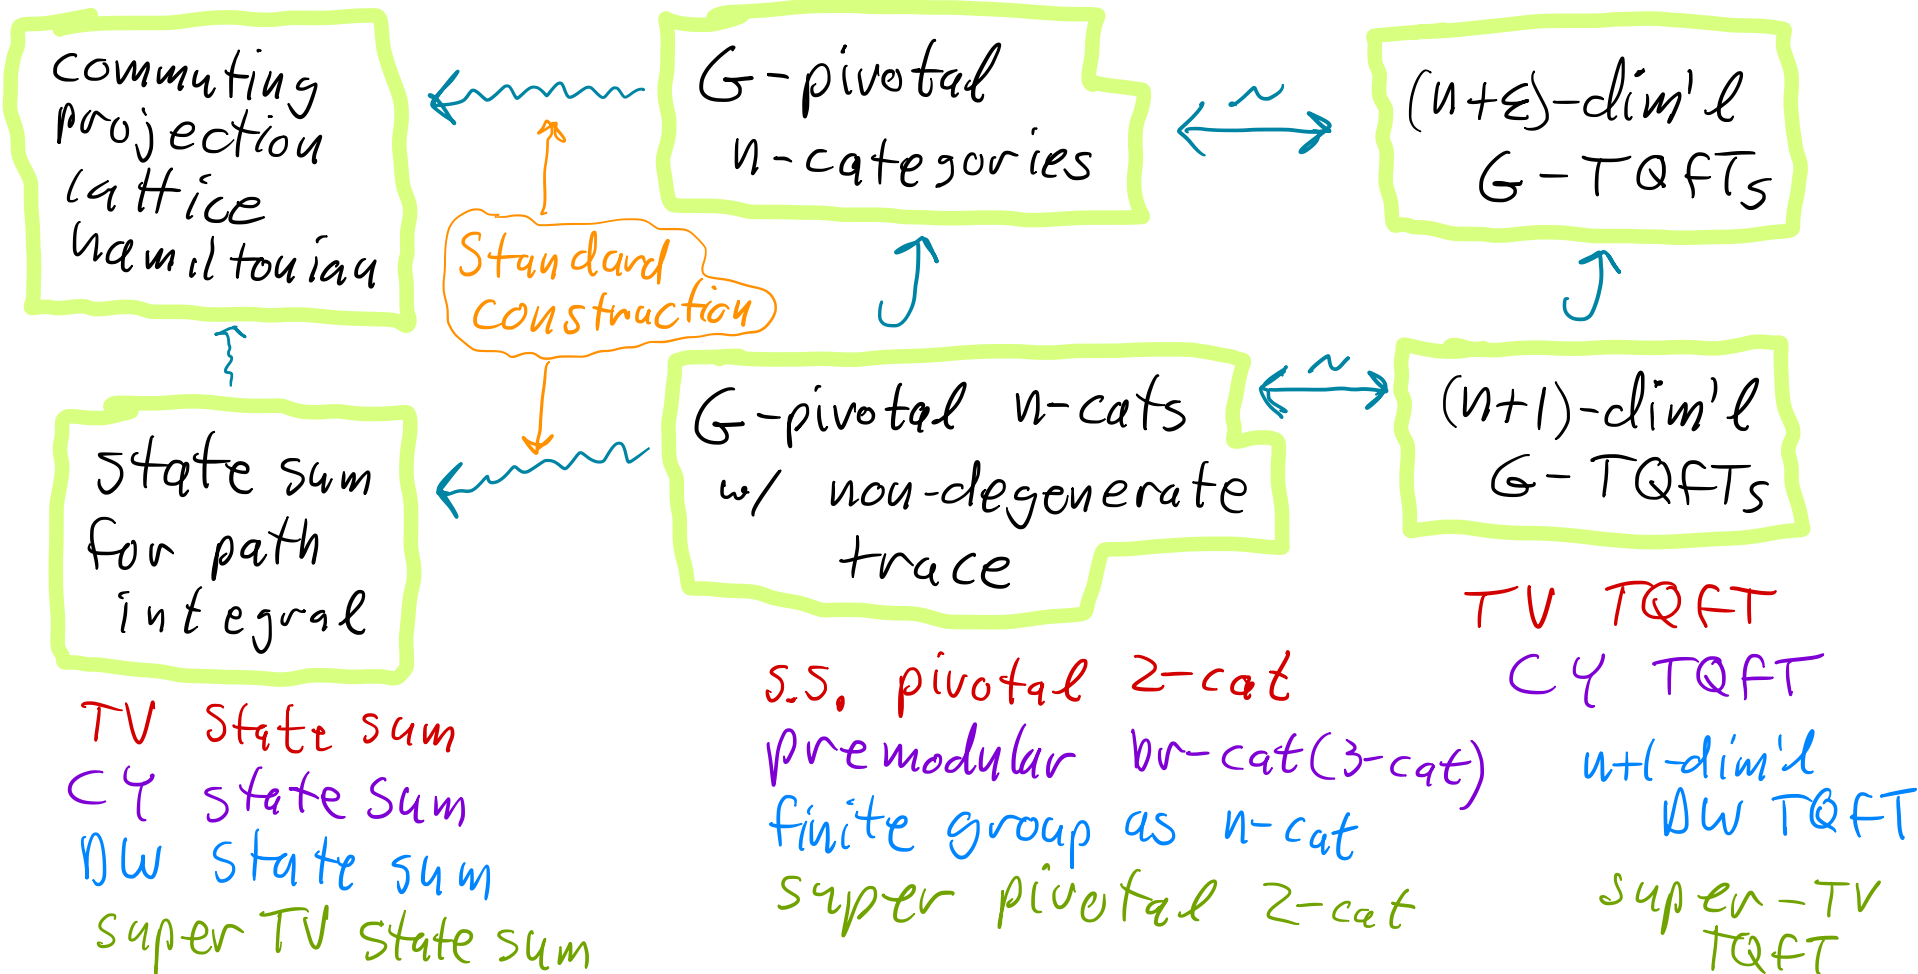 commuting
projection
lattice
hamiltonian
G-pivotal
n-categories
~
(n+ε)-dim'l
G-TQFTs
Standard
construction
state sum
for path
integral
G-pivotal n-cats
w/ non-degenerate
trace
~
(n+1)-dim'l
G-TQFTs
TV state sum
CY state sum
DW state sum
super TV state sum
s.s. pivotal 2-cat
premodular br-cat(3-cat)
finite group as n-cat
super pivotal 2-cat
TV TQFT
CY TQFT
n+1-dim'l
DW TQFT
super-TV
TQFT